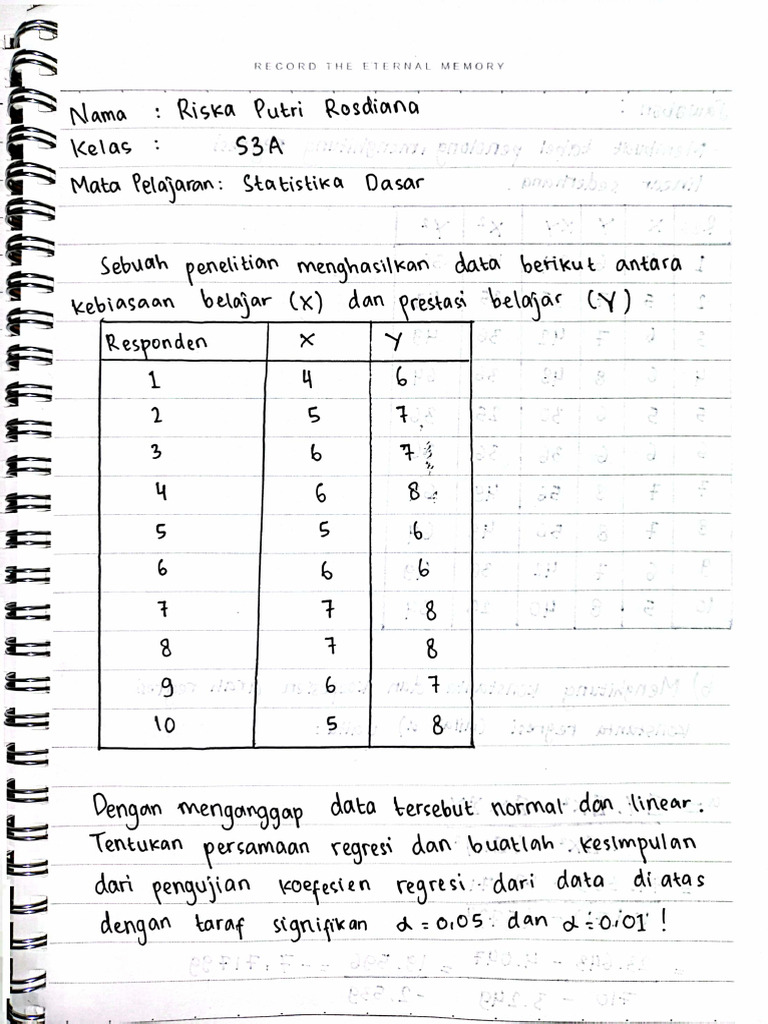 RECORD THE ETERNAL MEMORY
Nama : Riska Putri Rosdiana
Kelas : S3A
Mata Pelajaran : Statistika Dasar
Sebuah penelitian menghasilkan data berikut antara
kebiasaan belajar (X) dan prestasi belajar (Y)
Responden X Y
1 4 6
2 5 7
3 6 7
4 6 8
5 5 6
6 6 6
7 7 8
8 7 8
9 6 7
10 5 8
Dengan menganggap data tersebut normal dan linear.
Tentukan persamaan regresi dan buatlah kesimpulan
dari pengujian koefesien regresi dari data di atas
dengan taraf signifikan α = 0,05 dan α = 0,01 !